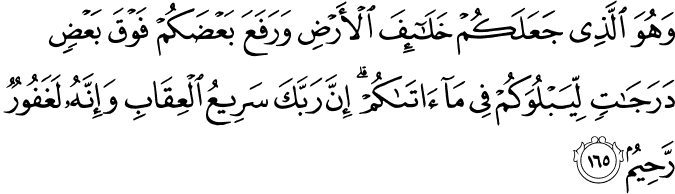 وَهُوَ ٱلَّذِى جَعَلَكُمْ خَلَـٰٓئِفَ ٱلْأَرْضِ وَرَفَعَ بَعْضَكُمْ فَوْقَ بَعْضٍ
دَرَجَـٰتٍ لِّيَبْلُوَكُمْ فِى مَآ ءَاتَىٰكُمْ ۗ إِنَّ رَبَّكَ سَرِيعُ ٱلْعِقَابِ وَإِنَّهُۥ لَغَفُورٌ
رَّحِيمٌۢ ١٦٥